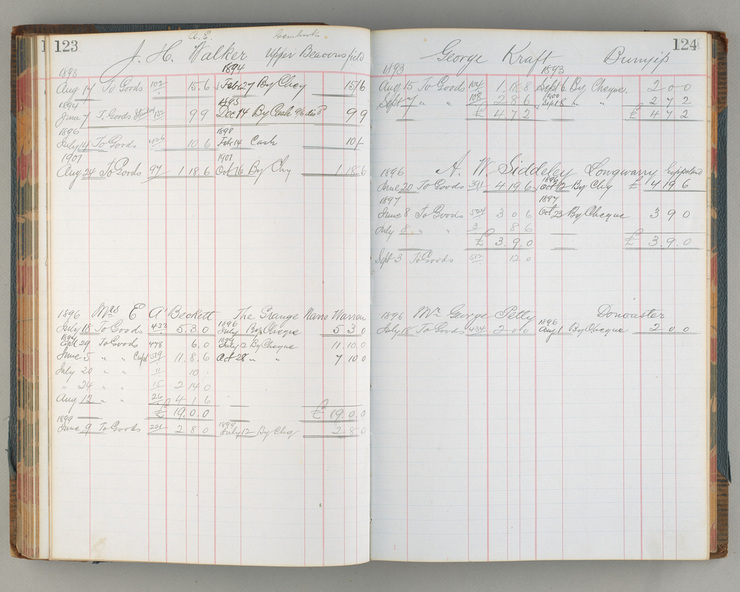 123
J. H. Walker Upper Beaconsfield
1893 1894
Aug 14 To Goods 15.6 Feb 27 By Chq 15/6
1894 1895
June 7 To Goods 9 9 Dec 14 By Cash 9 9
1896 1898
July 14 To Goods 10 6 Feb 14 Cash 10/-
1901 1901
Aug 24 To Goods 97 1 18.6 Oct 16 By Chq 1.18.6
1896 Mrs E A Beckett The Grange Narre Warren
July 18 To Goods 433 5.3.0 July By Cheque 5 3 0
29 " " 478 6.0 July 2 By Cheque 11.10.0
June 5 " " 11.8.6 Oct 28 " " 7 10 0
July 20 " " 10
" 24 " " 15 2 14 0
Aug 12 " " 4 1 6
£ 19.0.0 £ 19.0.0
1899 1899
June 9 To Goods 2 8 0 July 12 By Chq 2.8.0
124
George Kraft Bunyip
1893 1893
Aug 15 To Goods 1.18.8 Sept 6 By Cheque 2 0 0
Sept 7 " " 2 8 6 Sept 8 " " 2 7 2
£ 4 7 2 £ 4 7 2
1896 A. W. Siddeley Longwarry Gippsland
June 20 To Goods 391 4 19 6 Oct 12 By Chq £ 4 19 6
1897 1897
June 8 To Goods 3 0 6 Oct 23 By Cheque 3 9 0
July 8 " " 8 6
£ 3.9.0 £ 3.9.0
Sept 3 To Goods 12.0
1896 Mr George Petty Doncaster
July 18 To Goods 434 2 0 0 Aug 1 By Cheque 2 0 0